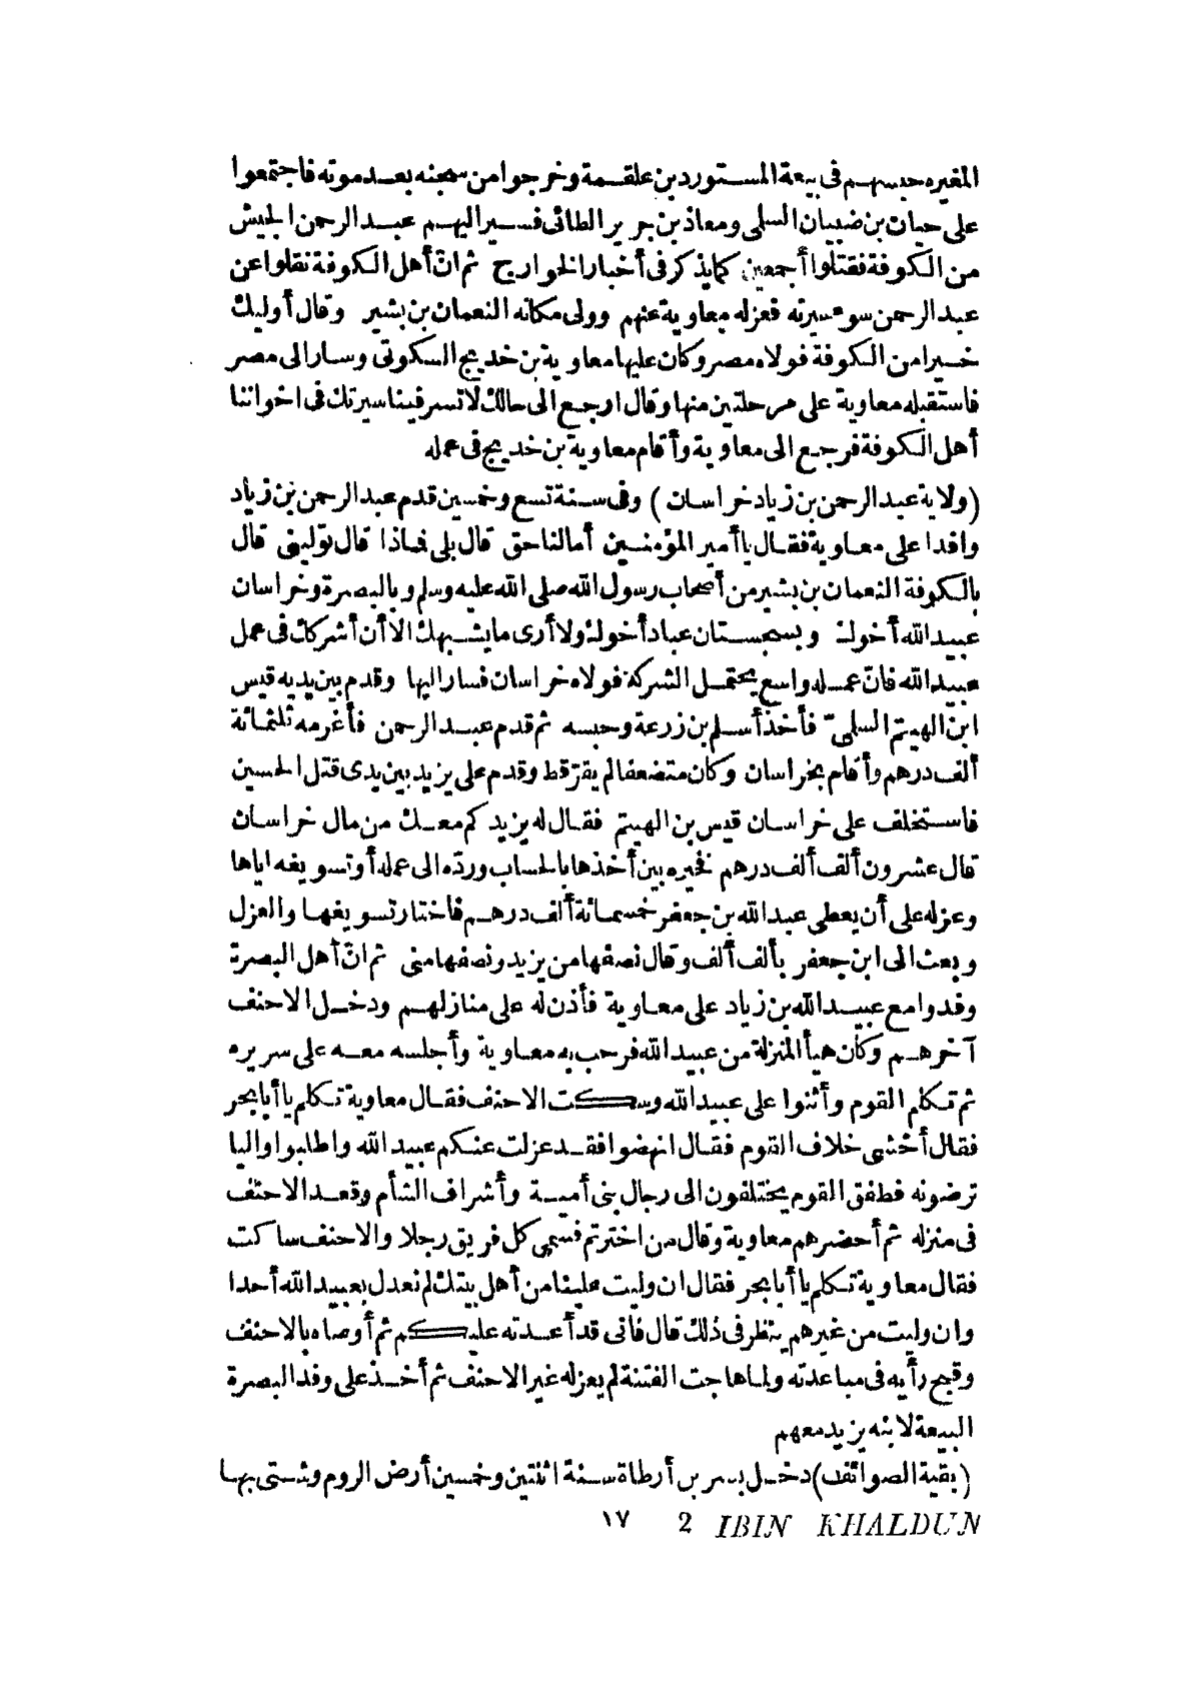 المغيرة حبسهم فى بيعة المستورد بن علقمة وخرجوا من سجنه بعد موته فاجتمعوا
على حيان بن ضبيان السلمى ومعاذ بن جرير الطائى فسير اليهم عبد الرحمن الجيش
من الكوفة فقتلوا أجمعين كما يذكر فى أخبار الخوارج ثم انّ أهل الكوفة نقلوا عن
عبد الرحمن سوء سيرته فعزله معاوية عنهم وولى مكانه النعمان بن بشير وقال أوليك
خيرا من الكوفة فولاه مصر وكان عليها معاوية بن خديج السكونى وسار الى مصر
فاستقبله معاوية على مرحلتين منها وقال ارجع الى حالك لا تسر فينا سيرتك فى اخواننا
أهل الكوفة فرجع الى معاوية وأقام معاوية بن خديج فى عمله
(ولاية عبد الرحمن بن زياد خراسان) وفى سنة تسع وخمسين قدم عبد الرحمن بن زياد
وافدا على معاوية فقال يا أمير المؤمنين أما لنا حق قال بلى فماذا قال توليني قال
بالكوفة النعمان بن بشير من أصحاب رسول الله صلى الله عليه وسلم وبالبصرة وخراسان
عبيد الله أخوك وبسجستان عباد أخوك ولا أرى ما يشبهك الا أن أشركك فى عمل
عبيد الله فانّ عمله واسع يحتمل الشركة فولاه خراسان فسار اليها وقدم بين يديه قيس
ابن الهيثم السلمىّ فأخذ أسلم بن زرعة وحبسه ثم قدم عبد الرحمن فأغرمه ثلثمائة
ألف درهم وأقام بخراسان وكان متضعفا لم يقرّ قط وقدم على يزيد بين يدى قتل الحسين
فاستخلف على خراسان قيس بن الهيثم فقال له يزيد كم معك من مال خراسان
قال عشرون ألف ألف درهم فخيره بين أخذها بالحساب وردّه الى عمله أو تسويغه اياها
وعزله على أن يعطى عبد الله بن جعفر خمسمائة ألف درهم فاختار تسويغها والعزل
وبعث الى ابن جعفر بألف ألف وقال نصفها من يزيد ونصفها منى ثم انّ أهل البصرة
وفدوا مع عبيد الله بن زياد على معاوية فأذن له على منازلهم ودخل الاحنف
آخرهم وكان هيأ المنزلة من عبيد الله فرحب به معاوية وأجلسه معه على سريره
ثم تكلم القوم وأثنوا على عبيد الله وسكت الاحنف فقال معاوية تكلم يا أبا بحر
فقال أخشى خلاف القوم فقال انهضوا فقد عزلت عنكم عبيد الله واطلبوا واليا
ترضونه فطفق القوم يختلفون الى رجال بنى أمية وأشراف الشأم وقعد الاحنف
فى منزله ثم أحضرهم معاوية وقال من اخترتم فسمى كل فريق رجلا والاحنف ساكت
فقال معاوية تكلم يا أبا بحر فقال ان وليت علينا من أهل بيتك لم نعدل بعبيد الله أحدا
وان وليت من غيرهم ينظر فى ذلك قال فانى قد أعدته عليكم ثم أوصاه بالاحنف
وقبح رأيه فى مباعدته ولما هاجت الفتنة لم يعزله غير الاحنف ثم أخذ على وفد البصرة
البيعة لابنه يزيد معهم
(بقية الصوائف) دخل بسر بن أرطاة سنة اثنتين وخمسين أرض الروم وشتى بها
١٧ 2 IBIN KHALDUN